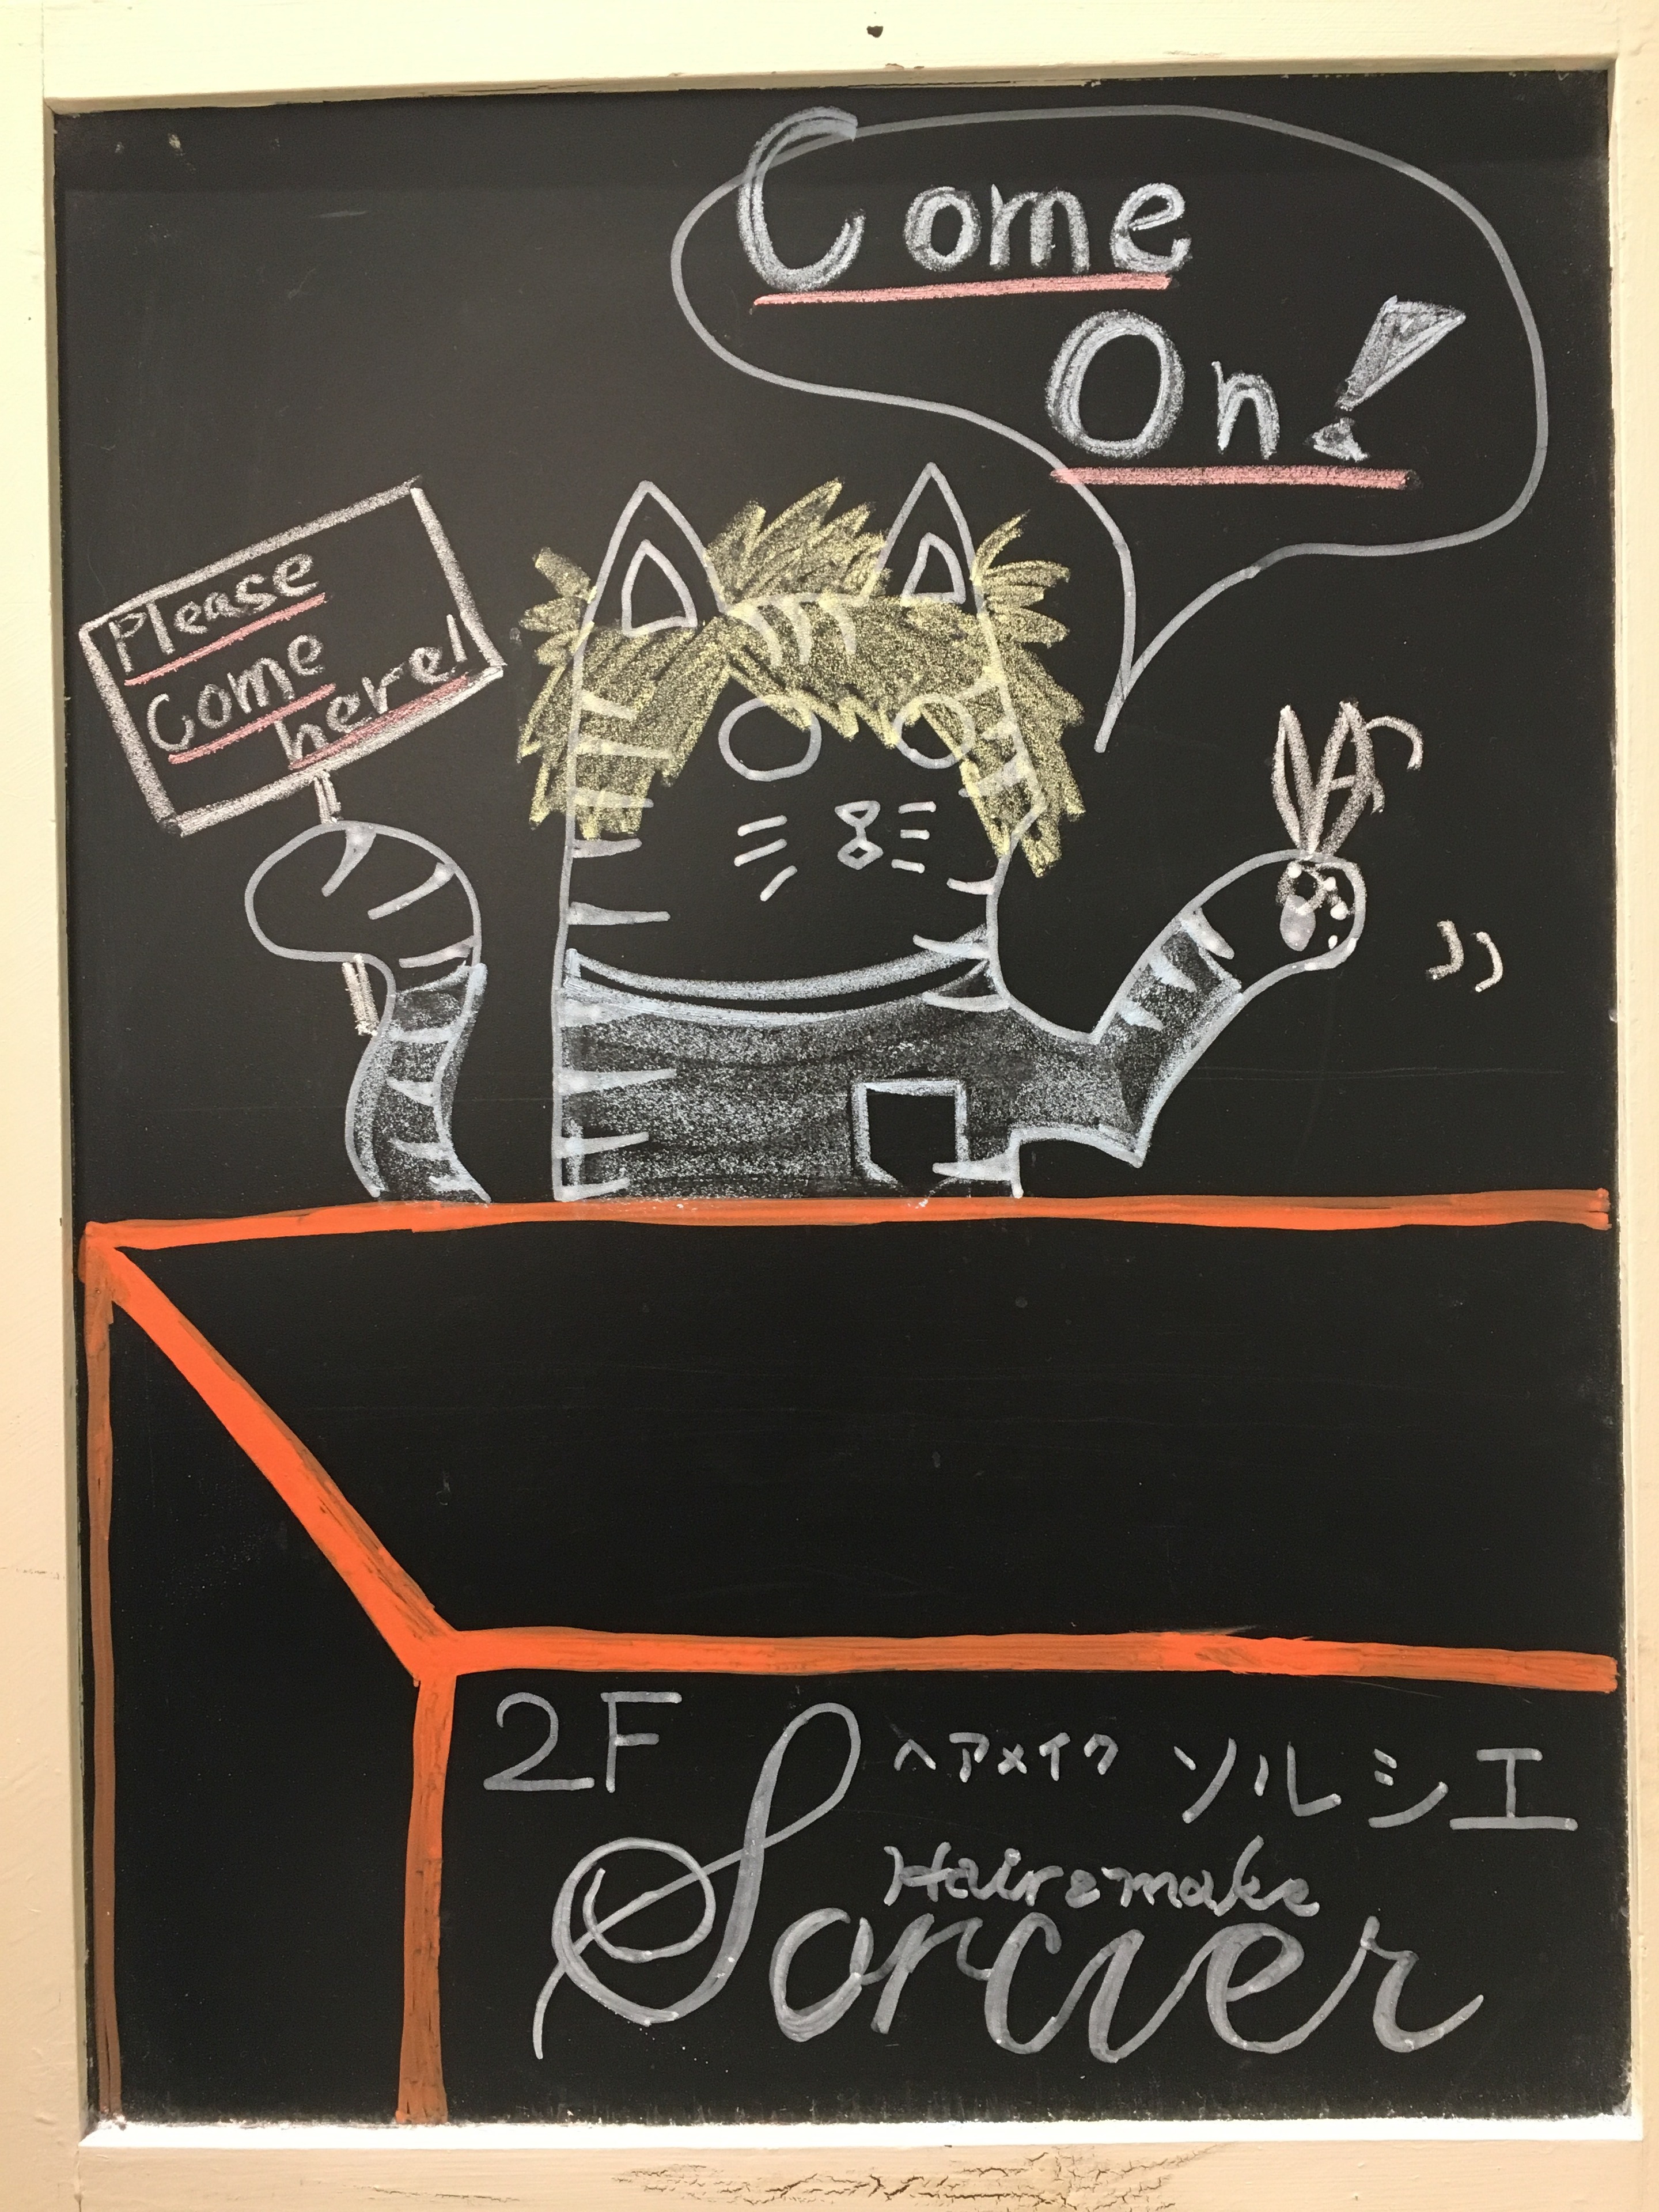 Come
On!
Please
Come
here!
2F
ヘアメイク ソルシエ
Hair&make
Sorcier